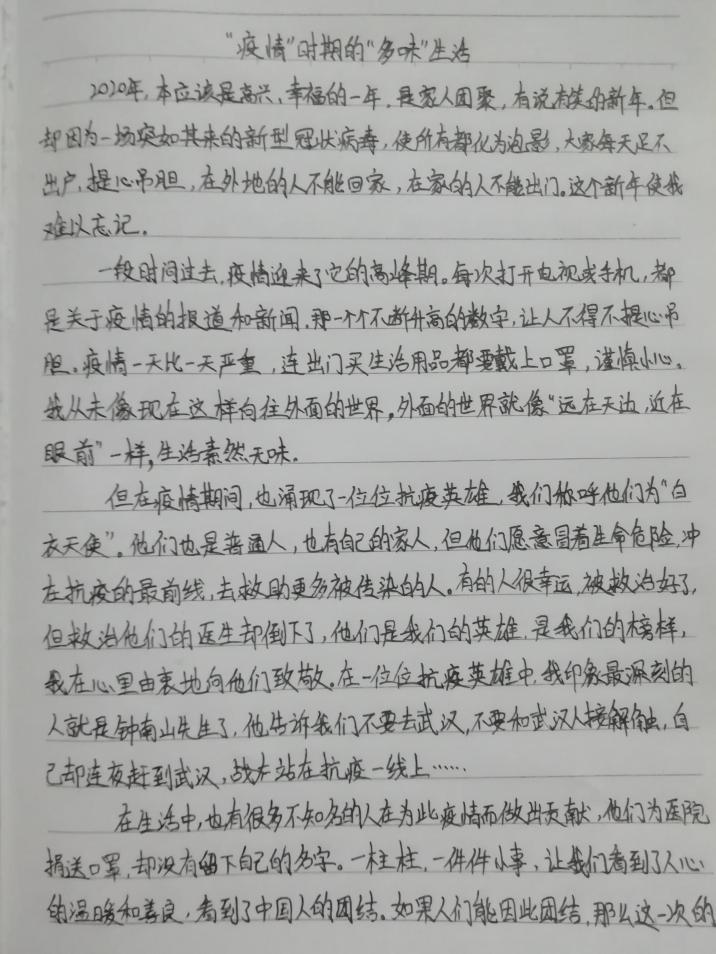 “疫情”时期的“多味”生活
2020年，本应该是高兴、幸福的一年，是家人团聚，有说有笑的新年。但
却因为一场突如其来的新型冠状病毒，使所有都化为泡影，大家每天足不
出户，提心吊胆，在外地的人不能回家，在家的人不能出门。这个新年使我
难以忘记。
一段时间过去，疫情迎来了它的高峰期。每次打开电视或手机，都
是关于疫情的报道和新闻，那一个个不断升高的数字，让人不得不提心吊
胆。疫情一天比一天严重，连出门买生活用品都要戴上口罩，谨慎小心。
我从未像现在这样向往外面的世界，外面的世界就像“远在天边，近在
眼前”一样，生活素然无味。
但在疫情期间，也涌现了一位位抗疫英雄，我们称呼他们为“白
衣天使”。他们也是普通人，也有自己的家人，但他们愿意冒着生命危险，冲
在抗疫的最前线，去救助更多被传染的人。有的人很幸运，被救治好了，
但救治他们的医生却倒下了，他们是我们的英雄，是我们的榜样，
我在心里由衷地向他们致敬。在一位位抗疫英雄中，我印象最深刻的
人就是钟南山先生了，他告诉我们不要去武汉，不要和武汉人接解触，自
己却连夜赶到武汉，战左站在抗疫一线上……
在生活中，也有很多不知名的人在为此疫情而做出贡献，他们为医院
捐送口罩，却没有留下自己的名字。一桩桩，一件件小事，让我们看到了人心
的温暖和善良，看到了中国人的团结。如果人们能因此团结，那么这一次的